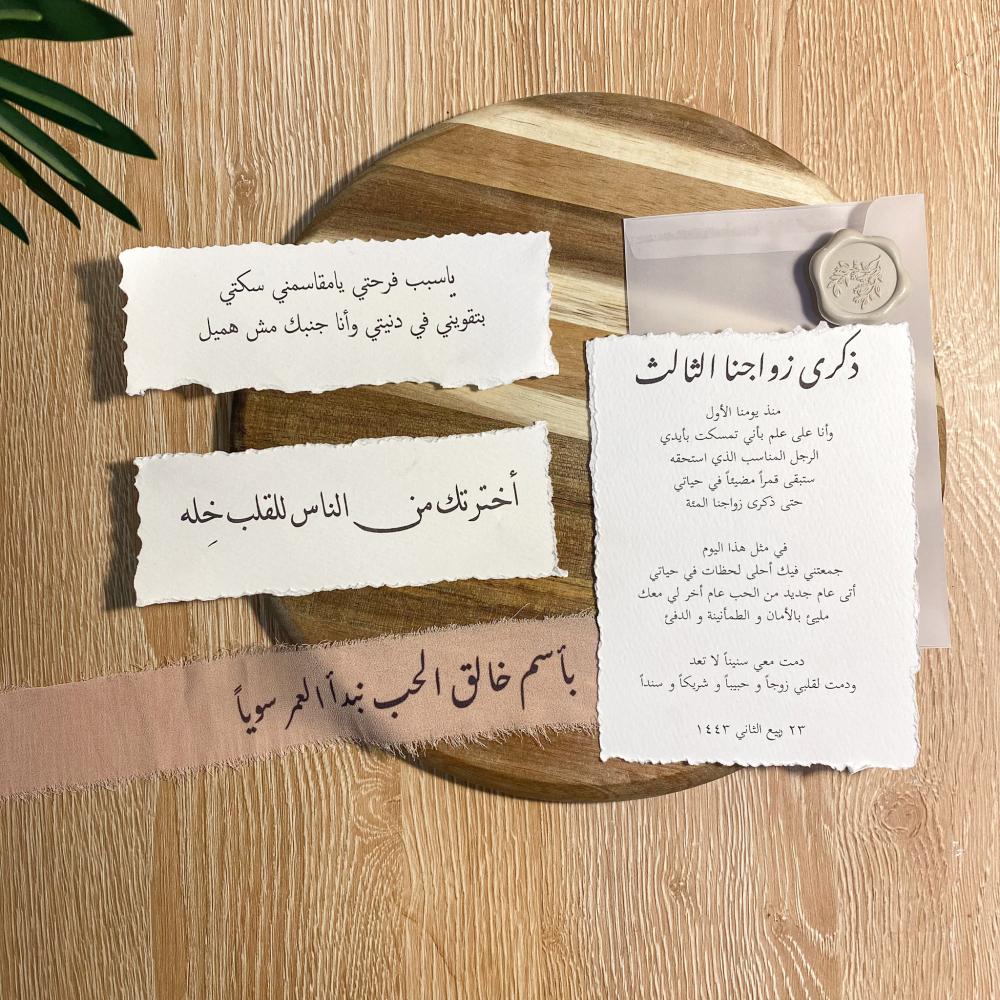 ياسبب فرحتي يامقاسمني سكتي
بتقويني في دنيتي وأنا جنبك مش هميل
أخترتك من الناس للقلب خِله
بأسم خالق الحب نبدأ العمر سوياً
ذكرى زواجنا الثالث
منذ يومنا الأول
وأنا على علم بأني تمسكت بأيدي
الرجل المناسب الذي استحقه
ستبقى قمراً مضيئاً في حياتي
حتى ذكرى زواجنا المئة
في مثل هذا اليوم
جمعتني فيك أحلى لحظات في حياتي
أتى عام جديد من الحب عام أخر لي معك
مليئ بالأمان و الطمأنينة و الدفئ
دمت معي سنيناً لا تعد
ودمت لقلبي زوجاً و حبيباً و شريكاً و سنداً
٢٣ ربيع الثاني ١٤٤٣